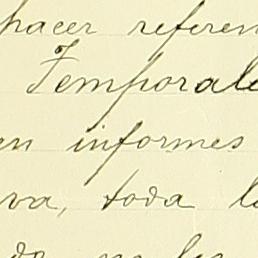 hacer referen
Temporale
en informes
va, toda l